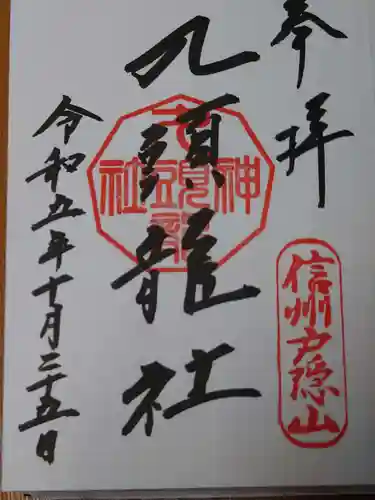 奉拝
信州戸隠山
九頭龍社
九頭龍神社
令和五年十月二十五日